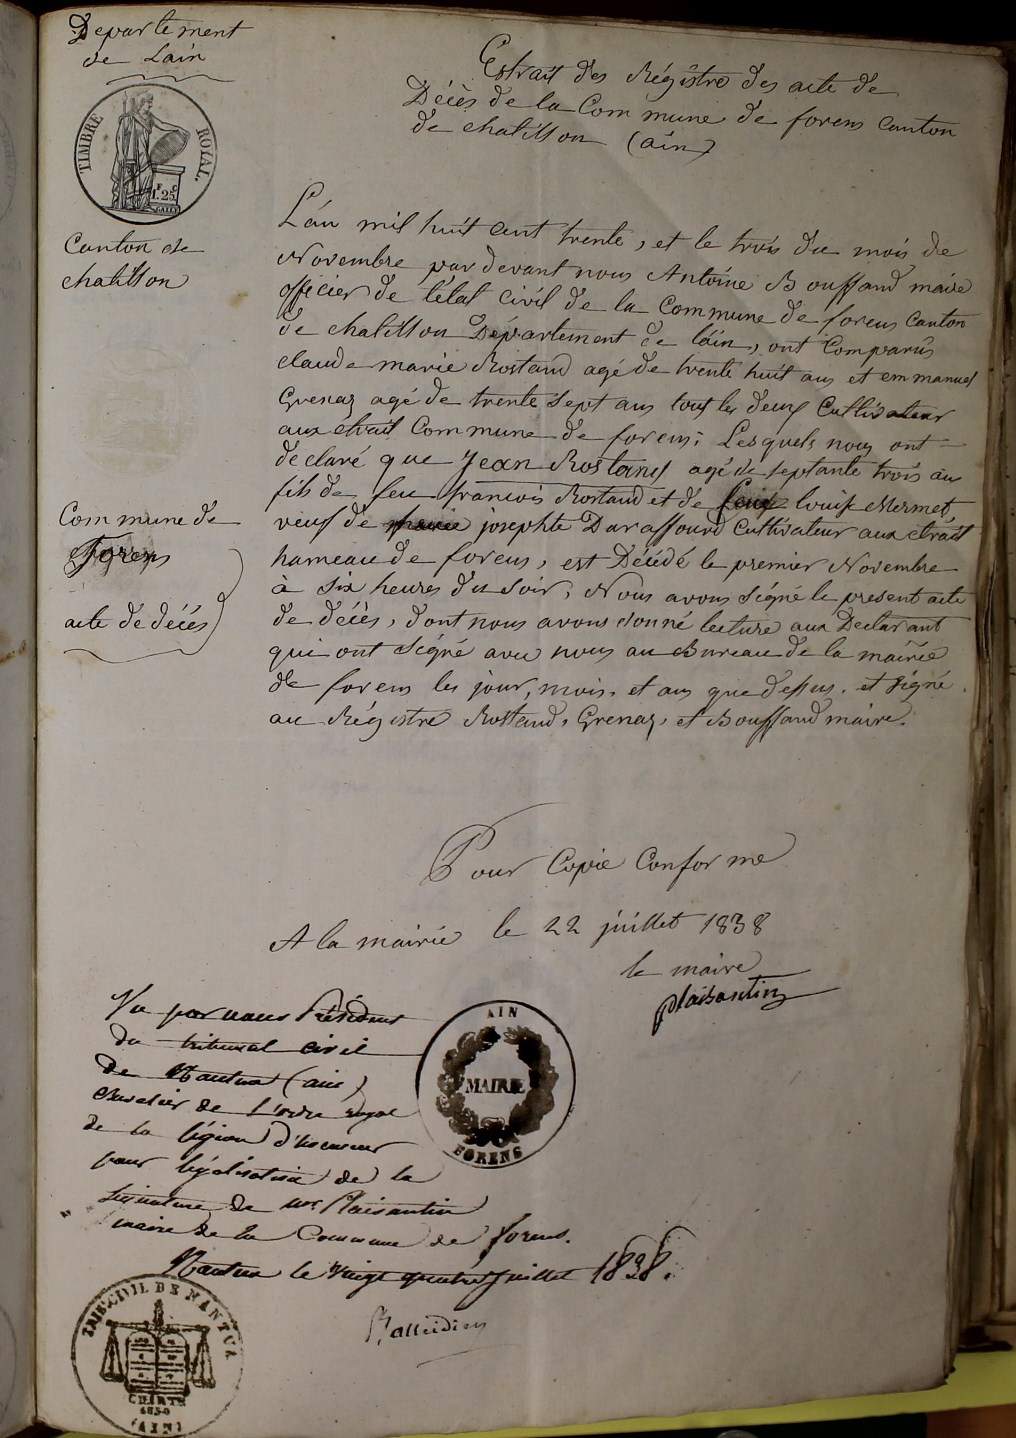 Departement
de Lain
TIMBRE ROYAL.
1F 25C
Extrait des Régistre des acte de
Décès de la Commune de forens Canton
de chatillon (ain)
Canton de
chatillon
L'an mil huit cent trente, et le trois du mois de
Novembre par devant nous Antoine Bouffand maire
officier de l'etat civil de la Commune de forens Canton
de chatillon Département de lain, ont Comparûs
claude marie Rostand agé de trente huit ans et emmanuel
Grenaz agé de trente sept ans tous les deux Cultivateur
aux etrait Commune de forens; Lesquels nous ont
declaré que Jean Rostand agé de septante trois ans
fils de feu francois Rostand et de louise Mermet,
veuf de josephte Daraffourd Cultivateur aux etrait
hameau de forens, est Décédé le premier Novembre
à six heures du soir, Nous avons signé le present acte
de décès, dont nous avons donné lecture aux Declarant
qui ont signé avec nous au Bureau de la mairie
de forens les jour, mois, et ans que dessus. et signé
au Régistre Rostand, Grenaz, et Bouffand maire.
Commune de
Forens
acte de décés
Pour Copie Conforme
A la mairie le 22 juillet 1838
le maire
Plaisantin
Vu par nous Président
du tribunal civil
de Nantua (ain)
chevalier de l'ordre royal
de la légion d'honneur
pour légalisation de la
signature de Mr Plaisantin
maire de la Commune de forens.
Nantua le vingt quatre juillet 1838.
AIN
MAIRIE
FORENS
TRIB. CIVIL DE NANTUA
CHARTE
1830
(AIN)